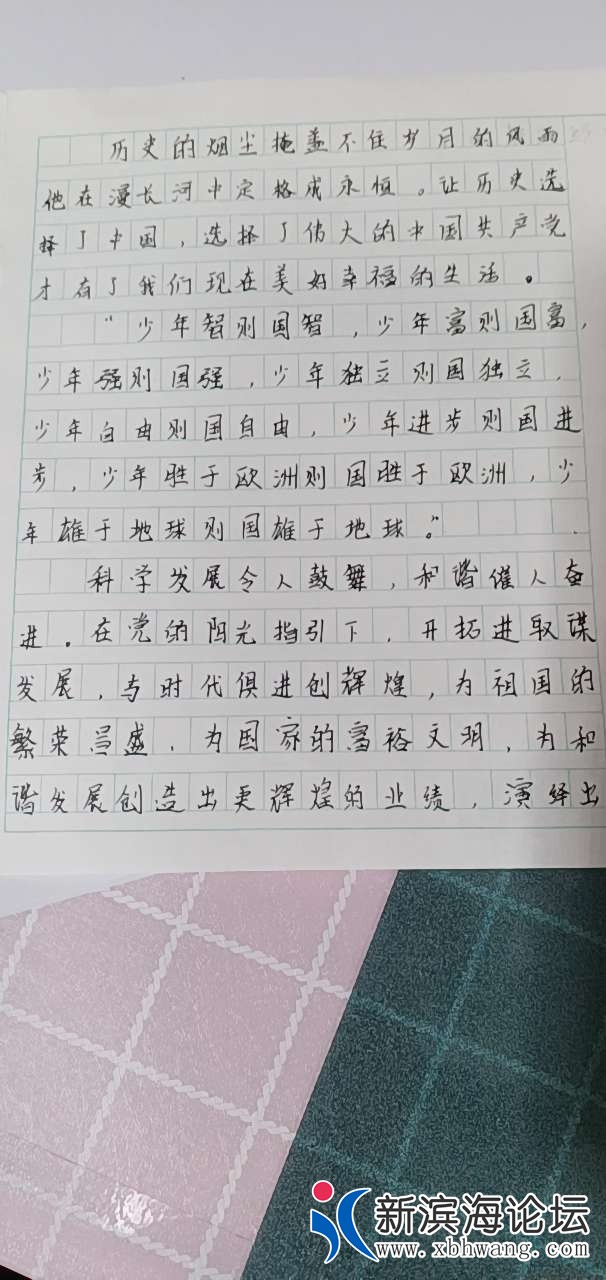 历史的烟尘掩盖不住岁月的风雨
他在漫长河中定格成永恒。让历史选
择了中国，选择了伟大的中国共产党
才有了我们现在美好幸福的生活。
“少年智则国智，少年富则国富，
少年强则国强，少年独立则国独立，
少年自由则国自由，少年进步则国进
步，少年胜于欧洲则国胜于欧洲，少
年雄于地球则国雄于地球。”
科学发展令人鼓舞，和谐催人奋
进。在党的阳光指引下，开拓进取谋
发展，与时代俱进创辉煌，为祖国的
繁荣昌盛、为国家的富裕文明，为和
谐发展创造出更辉煌的业绩，演绎出
新滨海论坛
www.xbhwang.com